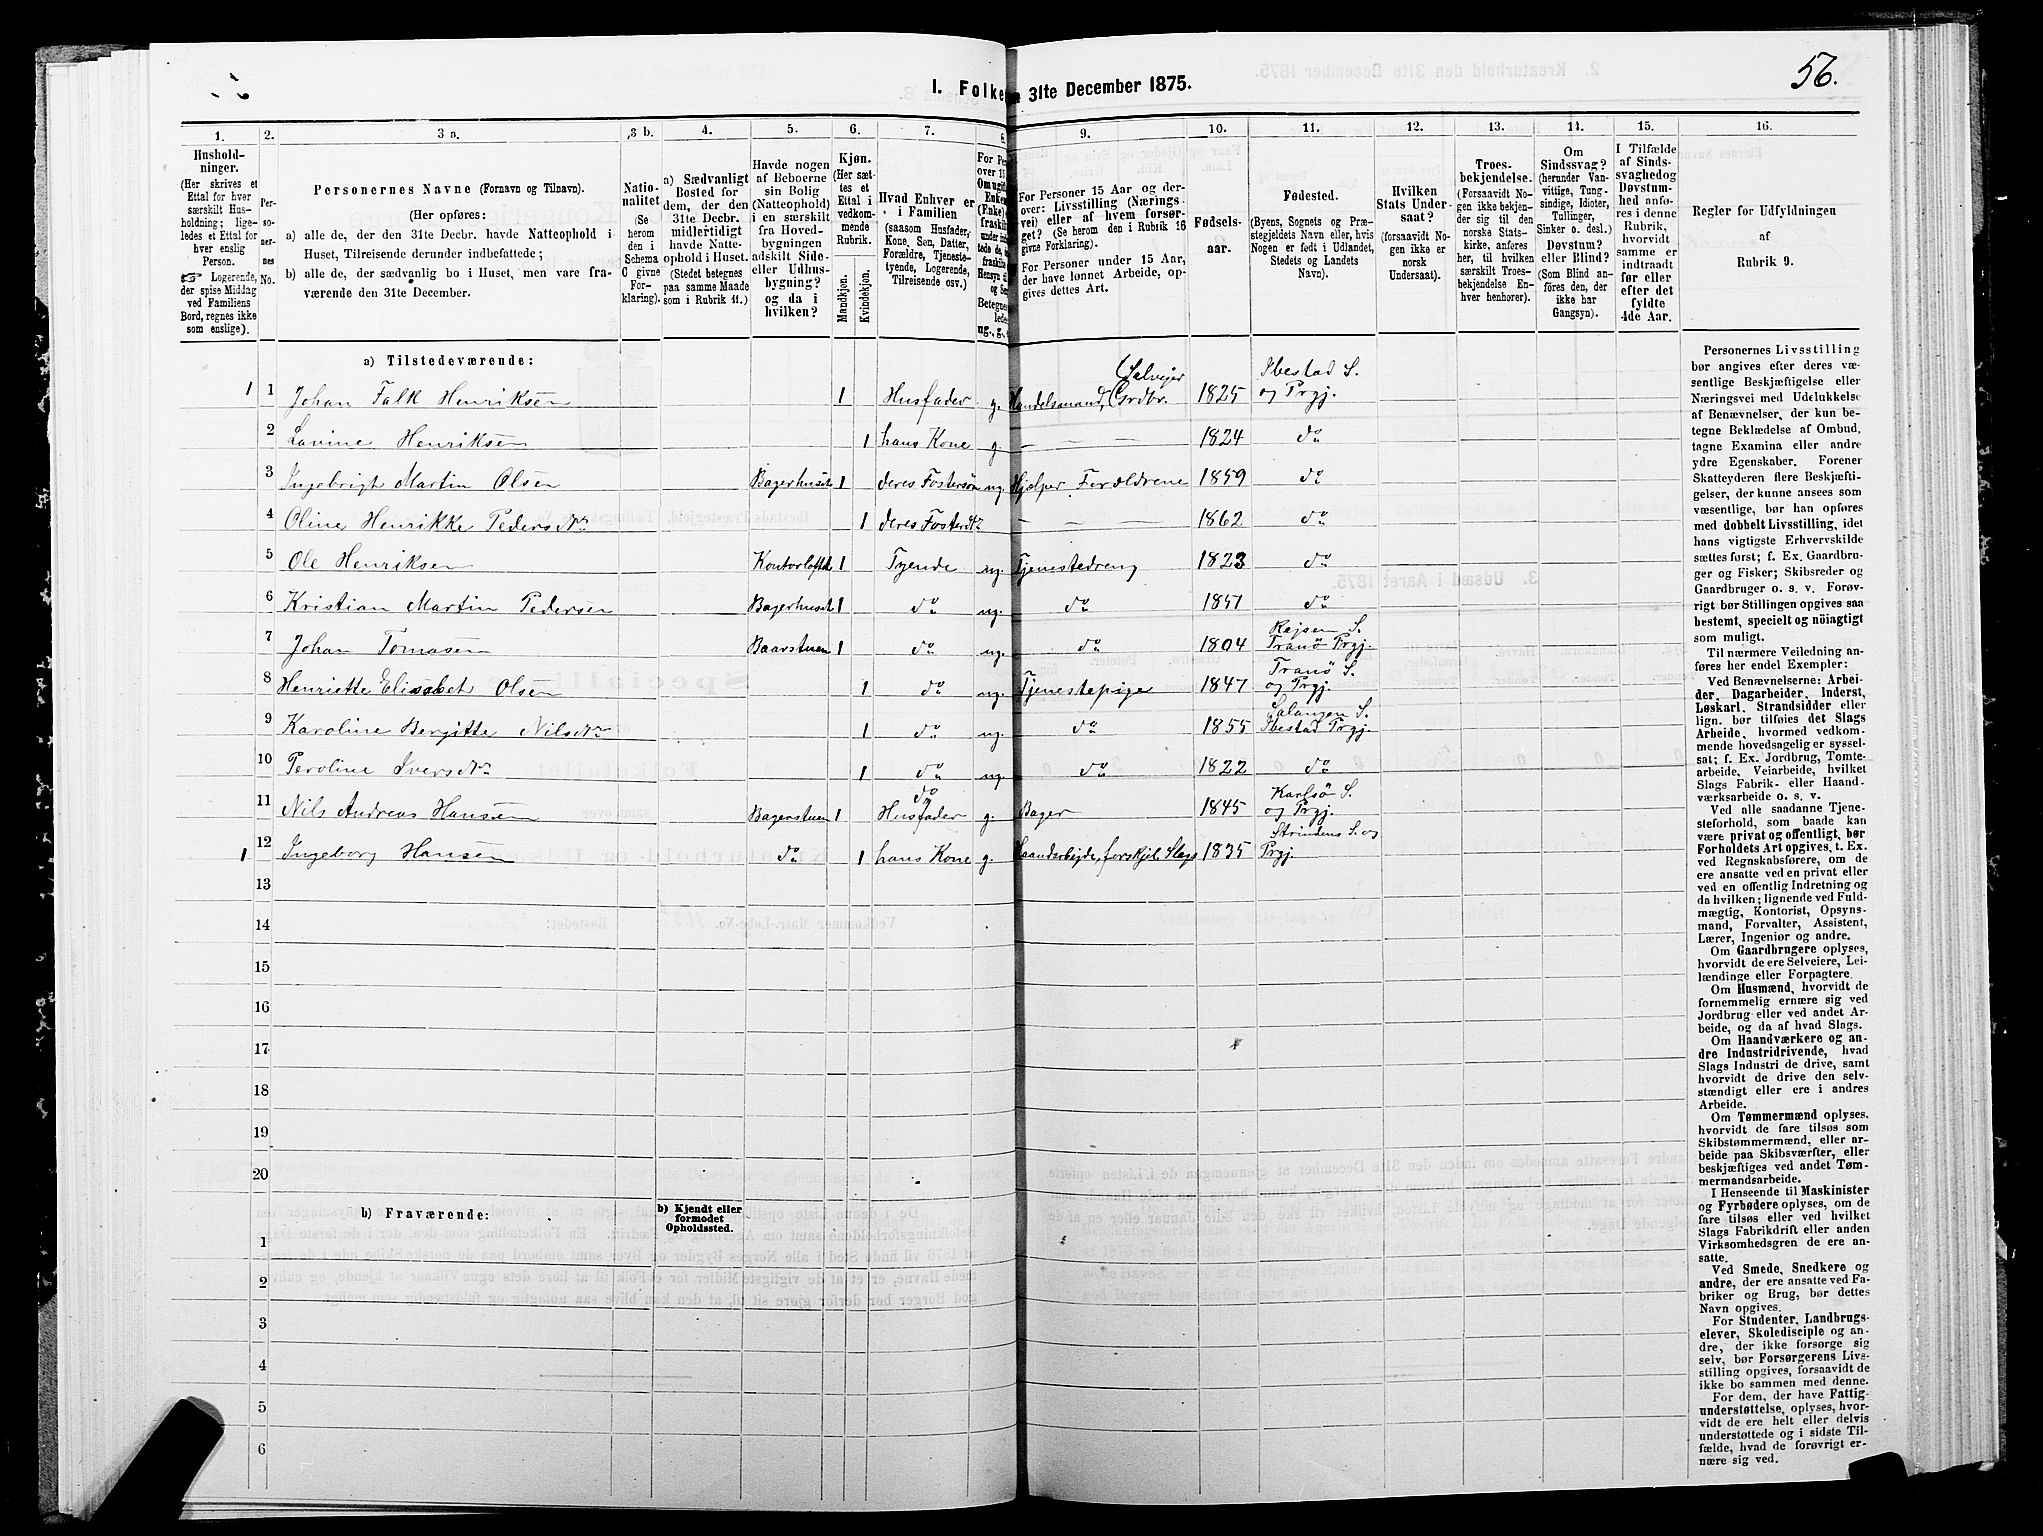 56.
I. Folke
31te December 1875.
1.
2.
3 a.
3 b.
4.
5.
6.
7.
8.
9.
10.
11.
12.
13.
14.
15.
16.
Hushold-
ninger.
(Her skrives et
Ettal for hver
særskilt Hus-
holdning; lige-
ledes et Ettal for
hver enslig
Person.
☞ Logerende,
der spise Middag
ved Familiens
Bord, regnes ikke
som enslige).
Per-
sono-
ner-
nes
No.
Personernes Navne (Fornavn og Tilnavn).
(Her opføres:
a) alle de, der den 31te Decbr. havde Natteophold i
Huset, Tilreisende derunder indbefattede;
b) alle de, der sædvanlig bo i Huset, men vare fra-
værende den 31te December.
Natio-
nalitet
(Se
herom
den i
Schema
C givne
For-
klaring).
a) Sædvanligt
Bosted for
dem, der den
31te Decbr.
midlertidigt
havde Natte-
ophold i Huset.
(Stedet betegnes
paa samme Maade
som i Rubrik 11.)
Havde nogen
af Beboerne
sin Bolig
(Natteophold)
i en særskilt
fra Hoved-
bygningen
adskilt Side-
eller Udhus-
bygning?
og da i
hvilken?
Kjøn.
(Her sæt-
tes et
Ettal i
vedkom-
mende
Rubrik.
Mandkjøn.
Kvindekjøn.
Hvad Enhver er
i Familien
(saasom Husfader,
Kone, Søn, Datter,
Forældre, Tjeneste-
tyende, Logerende,
Tilreisende osv.)
For Personer 15 Aar og der-
over: Livsstilling (Nærings-
vei) eller af hvem forsør-
get? (Se herom i Rubrik 16
givne Forklaring).
For Personer under 15 Aar,
der have lønnet Arbeide, op-
gives dettes Art.
Fødsels-
aar.
Fødested.
(Byens, Sognets og Præ-
stegjeldets Navn eller, hvis
Nogen er født i Udlandet,
Stedets og Landets
Navn).
Hvilken
Stats Under-
saat?
(forsaavidt No-
gen ikke er
norsk
Undersaat).
Troes-
bekjendelse.
(Forsaavidt No-
gen ikke bekjen-
der sig til den
norske Stats-
kirke, anføres
her, til hvilken
særskilt Troes-
bekjendelse En-
hver henhører).
Om
Sindssvag?
(herunder Van-
vittige, Tung-
sindige, Idioter,
Tullinger,
Sinker o. desl.)
Døvstum?
eller Blind?
(Som Blind an-
føres den, der
ikke har
Gangsyn).
I Tilfælde
af Sinds-
svaghed og
Døvstum-
hed anfø-
res i denne
Rubrik,
hvorvidt
samme er
indtraadt
før eller
efter det
fyldte
4de Aar.
Regler for Udfyldningen
af
Rubrik 9.
a) Tilstedeværende:
1 1 Johan Falk Henriksen 1 Husfader g. Handelsmand, Selveier Grdbr. 1825 Ibestad S. og Prgj.
2 Lavine Henriksen 1 hans Kone g — — — 1824 do
3 Ingebrigt Martin Olsen Bagerhuset 1 deres Fostersøn ug. Hjelper Forældrene 1859 do
4 Oline Henrikke Pedersdtr 1 deres Fosterdtr — — — 1862 do
5 Ole Henriksen Kontorloftet 1 Tyende ug. Tjenestedreng 1823 do
6 Kristian Martin Pedersen Bagerhuset 1 do ug. do 1851 do
7 Johan Tomasen Baarstuen 1 do ug. do 1804 Rejsen S. Tranö Prgj.
8 Henriette Elisabet Olsen 1 do ug. Tjenestepige 1847 Tranö S. og Prgj.
9 Karoline Bergitte Nilsdtr 1 do ug. do 1855 Salangen S. Ibestad Prgj.
10 Peroline Iversdtr 1 do ug. do 1822 do
11 Nils Andreas Hansen Bagerstuen 1 do Husfader g. Bager 1845 Karlsö S. og Prgj.
1 12 Ingeborg Hansen do 1 hans Kone g. Haandarbejde, forskjel. Slags 1835 Strindens S. og Prgj.
13
14
15
16
17
18
19
20
b) Fraværende:
b) Kjendt eller
formodet
Opholdssted.
1
2
3
4
5
6
Personernes Livsstilling
bør angives efter deres væ-
sentlige Beskjæftigelse eller
Næringsvei med Udelukkelse
af Benævnelser, der kun be-
tegne Beklædelse af Ombud,
tagne Examina eller andre
ydre Egenskaber. Forener
Skatteyderen flere Beskjæfti-
gelser, der kunne ansees som
væsentlige, bør han opføres
med dobbelt Livsstilling, idet
hans vigtigste Erhvervskilde
sættes først; f. Ex. Gaardbru-
ger og Fisker; Skibsreder og
Gaardbruger o. s. v. Forøv-
rigt bør Stillingen opgives saa
bestemt, specielt og nöiagtigt
som muligt.
Til nærmere Veiledning an-
føres her endel Exempler:
Ved Benævnelserne: Arbei-
der, Dagarbeider, Inderst,
Løskarl, Strandsidder eller
lign. bør tilføies det Slags
Arbeide, hvormed vedkom-
mende hovedsagelig er syssel-
sat; f. Ex. Jordbrug, Tomte-
arbeide, Veiarbeide, hvilket
Slags Fabrik- eller Haand-
værksarbeide o. s. v.
Ved alle saadanne Tjene-
steforhold, som baade kan
være privat og offentligt, bør
Forholdets Art opgives, t. Ex.
ved Regnskabsførere, om de
ere ansatte ved en privat eller
ved en offentlig Indretning og
da hvilken; lignende ved Fuld-
mægtig, Kontorist, Opsyns-
mand, Forvalter, Assistent,
Lærer, Ingeniør og andre.
Om Gaardbrugere oplyses,
hvorvidt de ere Selveiere, Lei-
lændinge eller Forpagtere.
Om Husmænd, hvorvidt de
fornemmelig ernære sig ved
Jordbrug eller ved andet Ar-
beide, og da af hvad Slags.
Om Haandværkere og an-
dre Industridrivende, hvad
Slags Industri de drive, samt
hvorvidt de drive den selv-
stændigt eller ere i andres
Arbeide.
Om Tømmermænd oplyses,
hvorvidt de fare tilsøs som
Skibstømmermænd, eller ar-
beide paa Skibsværfter, eller
beskjæftiges ved andet Tøm-
mermandsarbeide.
I Henseende til Maskinister
og Fyrbødere oplyses, om de
fare tilsøs eller ved hvilket
Slags Fabrikdrift eller anden
Virksomhedsgren de ere an-
satte.
Ved Smede, Snedkere og
andre, der ere ansatte ved Fa-
briker og Brug, bør dettes
Navn opgives.
For Studenter, Landbrugs-
elever, Skoledisciple og an-
dre, der ikke forsørge sig
selv, bør Forsørgerens Livs-
stilling opgives, forsaavidt de
ikke bo sammen med denne.
For dem, der have Fattig-
understøttelse, oplyses, hvor-
vidt de ere helt eller delvis
understøttede og i sidste Til-
fælde, hvad de forøvrigt er-
nære sig ved.